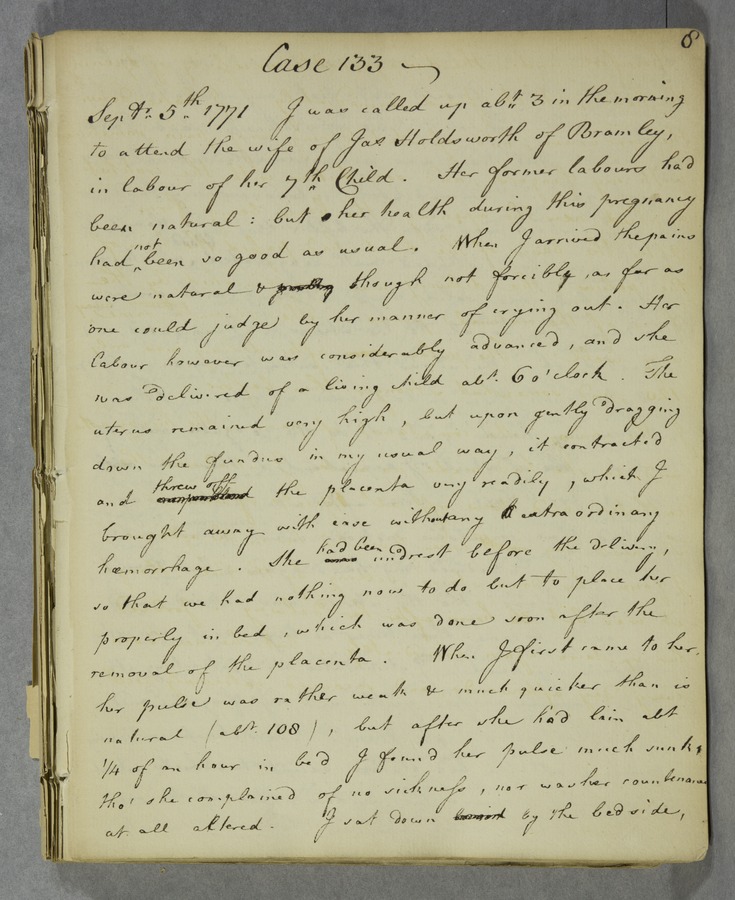 8
Case 133
Septr. 5th 1771 I was called up abt. 3 in the morning
to attend the wife of Jas. Holdsworth of Bramley,
in labour of her 7th Child. Her former labours had
been natural: but her health during this pregnancy
had not been so good as usual. When I arrived the pains
were natural & though not forcibly, as far as
one could judge by her manner of crying out. Her
labour however was considerably advanced, and she
was delivered of a living child abt. 6 o'clock. The
uterus remained very high, but upon gently dragging
down the fundus in my usual way, it contracted
and threw off the placenta very readily, which I
brought away with ease without any extraordinary
hæmorrhage. She had been undrest before the delivery,
so that we had nothing now to do but to place her
properly in bed, which was done soon after the
removal of the placenta. When I first came to her,
her pulse was rather weak & much quicker than is
natural (abt. 108), but after she had lain abt
1/4 of an hour in bed I found her pulse much sunk,
tho' she complained of no sickness, nor was her countenance
at all altered. I sat down by the bedside,